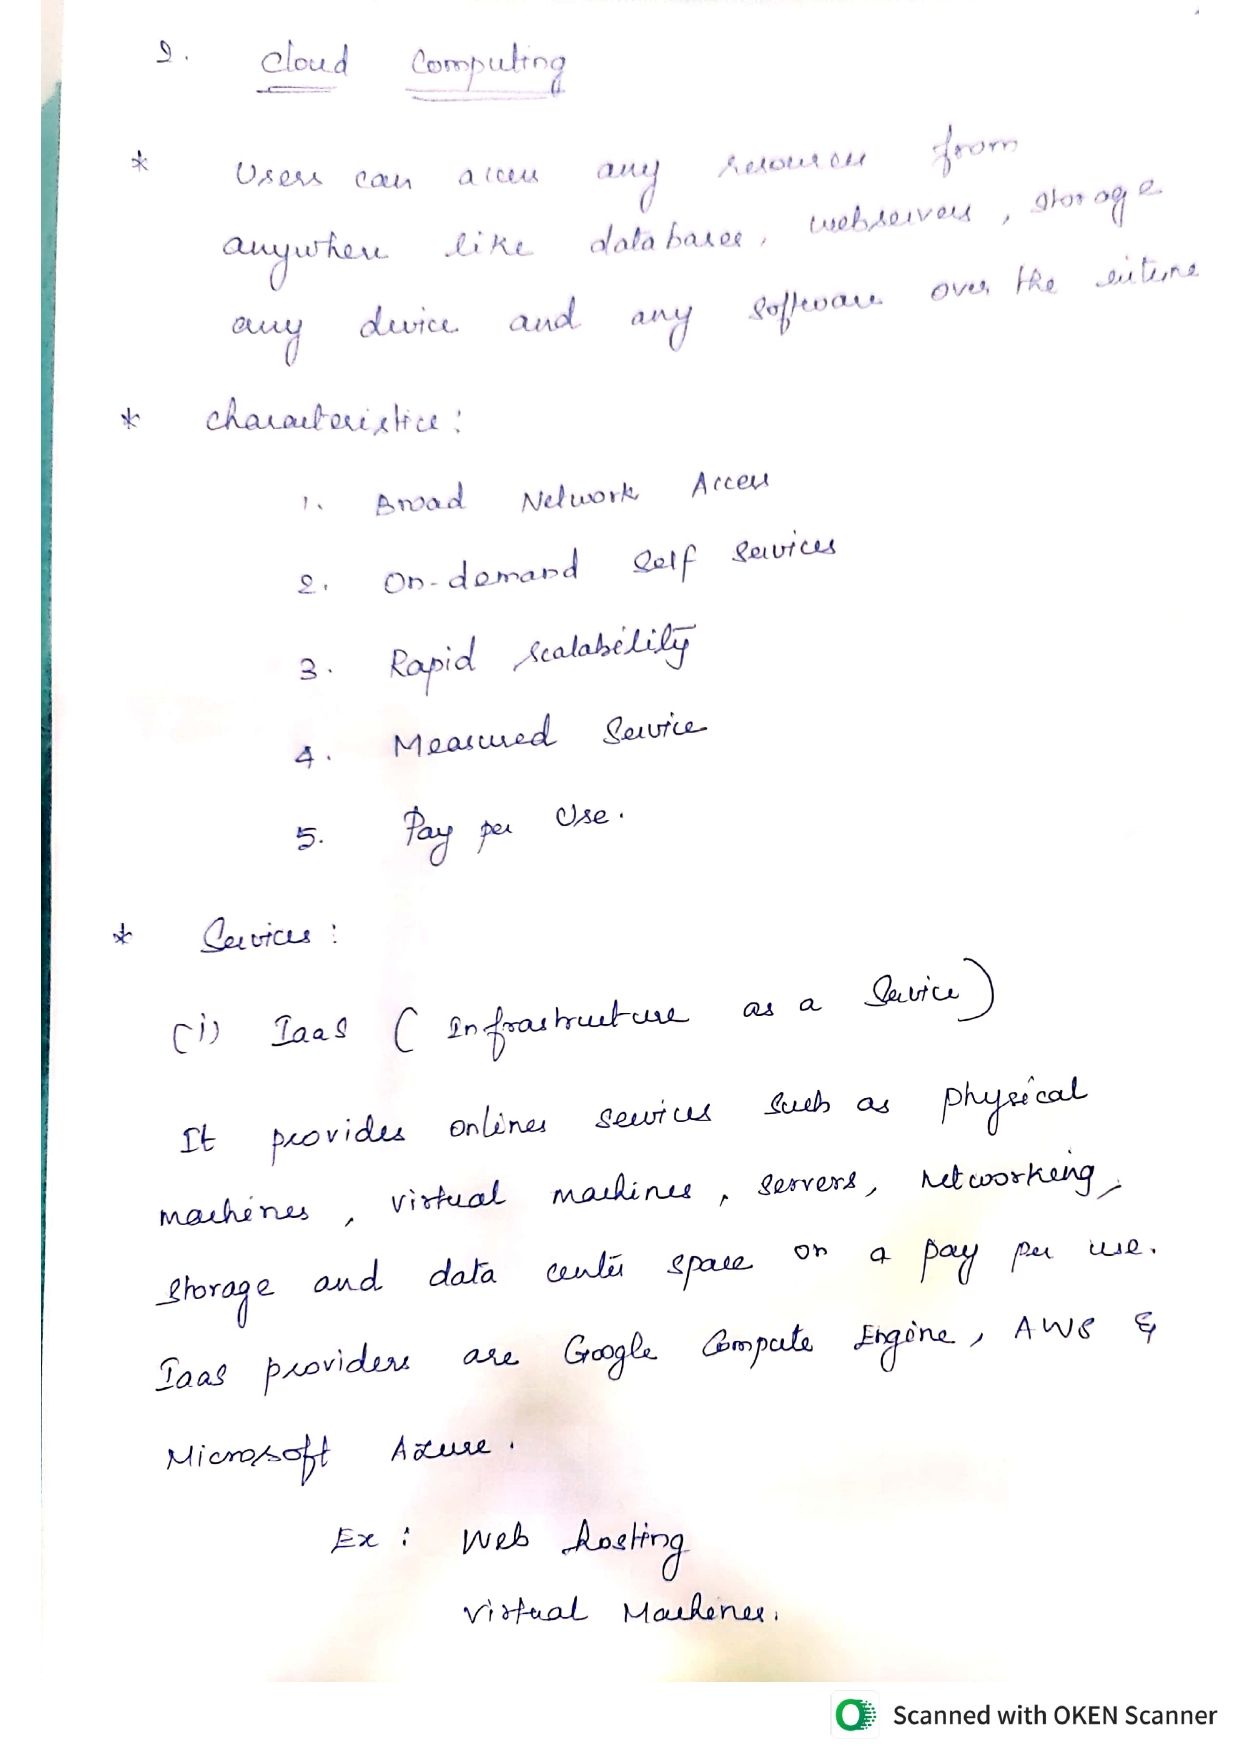 2. Cloud Computing
* Users can access any resources from
anywhere like databases, webservers, storage
any device and any software over the interne
* Characteristics:
1. Broad Network Access
2. On-demand Self Services
3. Rapid Scalability
4. Measured Service
5. Pay per Use.
* Services:
(i) IaaS (Infrastructure as a Service)
It provides onlines services such as physical
machines, virtual machines, servers, networking,
storage and data center space on a pay per use.
IaaS providers are Google Compute Engine, AWS &
Microsoft Azure.
Ex: Web hosting
Virtual Machines.
Scanned with OKEN Scanner